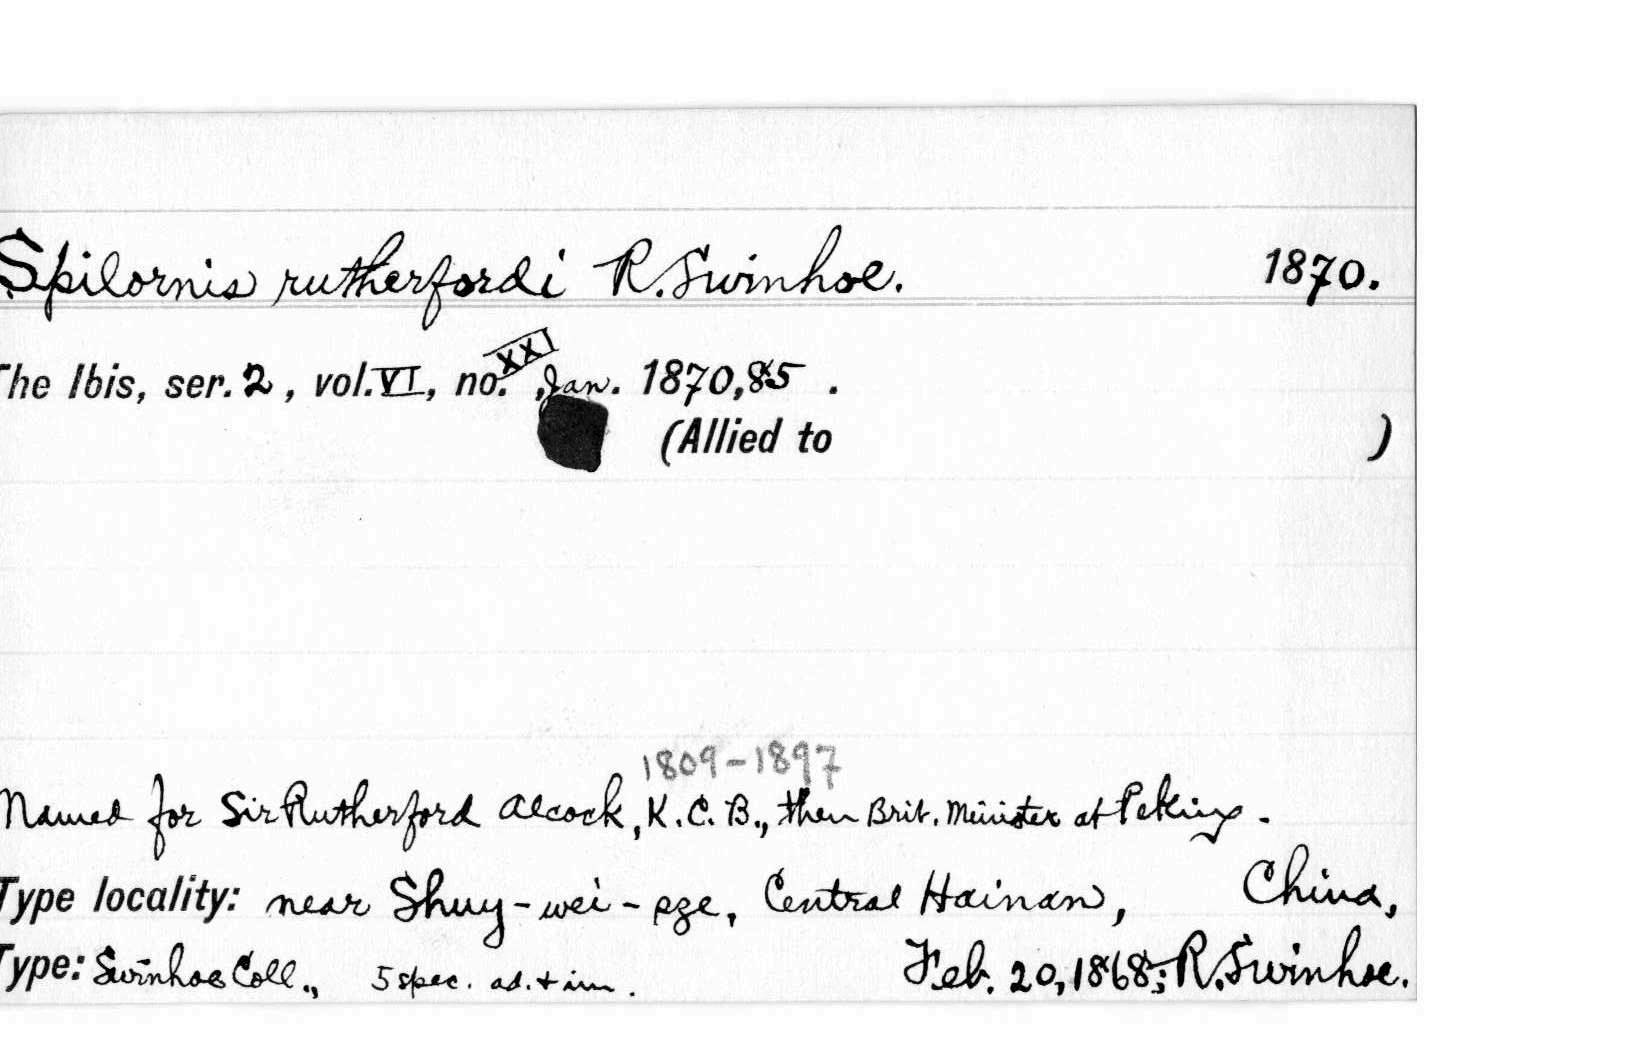 Spilornis rutherfordi R. Swinhoe. 1870.
The Ibis, ser. 2, vol. VI, no. XXI, Jan. 1870, 85.
(Allied to )
1809-1897
Named for Sir Rutherford Alcock, K.C.B., then Brit. Minister at Peking.
Type locality: near Shuy-wei-sze, Central Hainan, China,
Type: Swinhoe Coll., 5 spec. ad. + im. Feb. 20, 1868; R. Swinhoe.